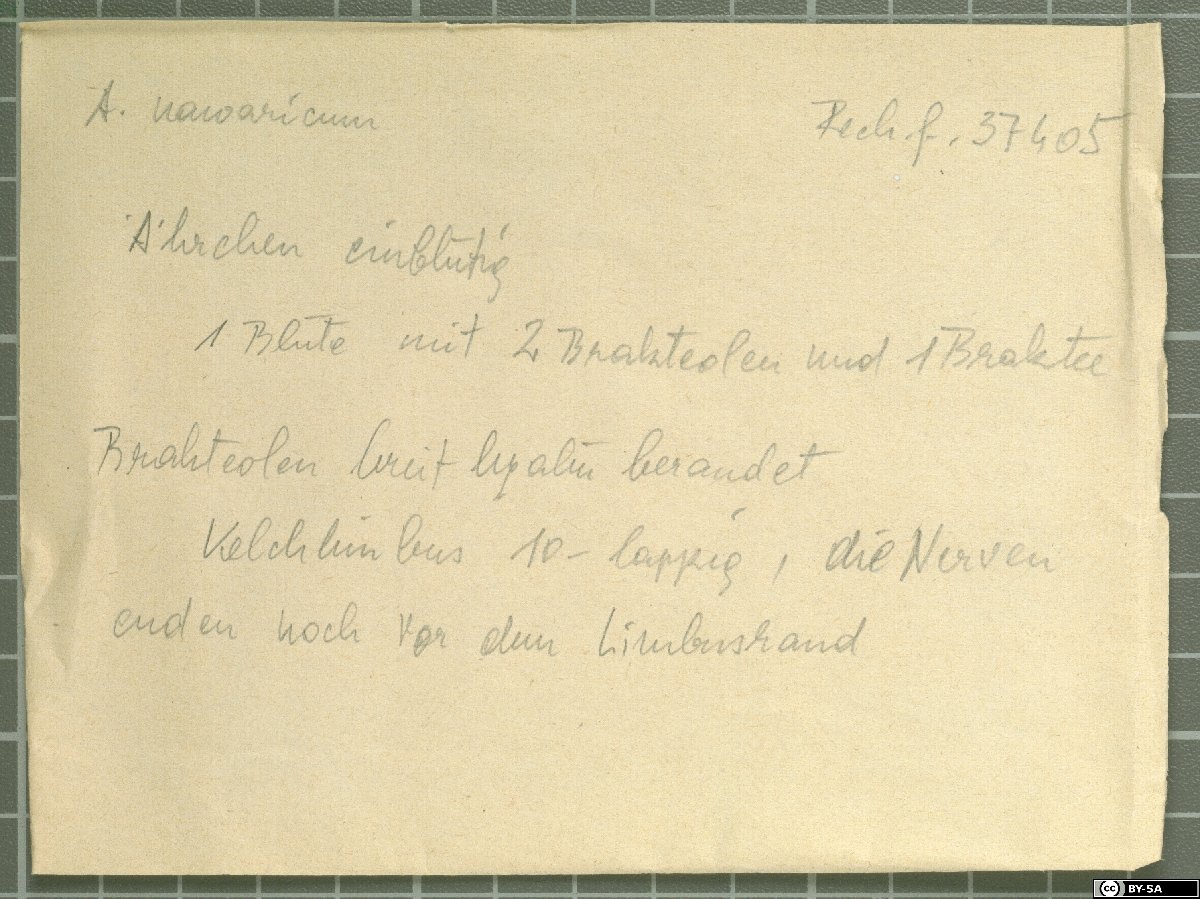 A. nawaricum Rech. f. 37405
Ährchen einblütig
1 Blüte mit 2 Brakteolen und 1 Braktee
Brakteolen breit hyalin berandet
Kelchlimbus 10-lappig, die Nerven
enden noch vor dem Limbusrand
cc BY-SA